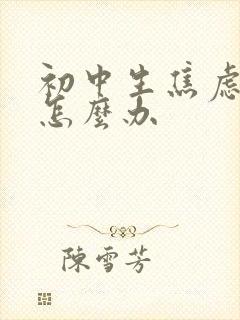 初中生焦虑
怎麼办
陳雪芳